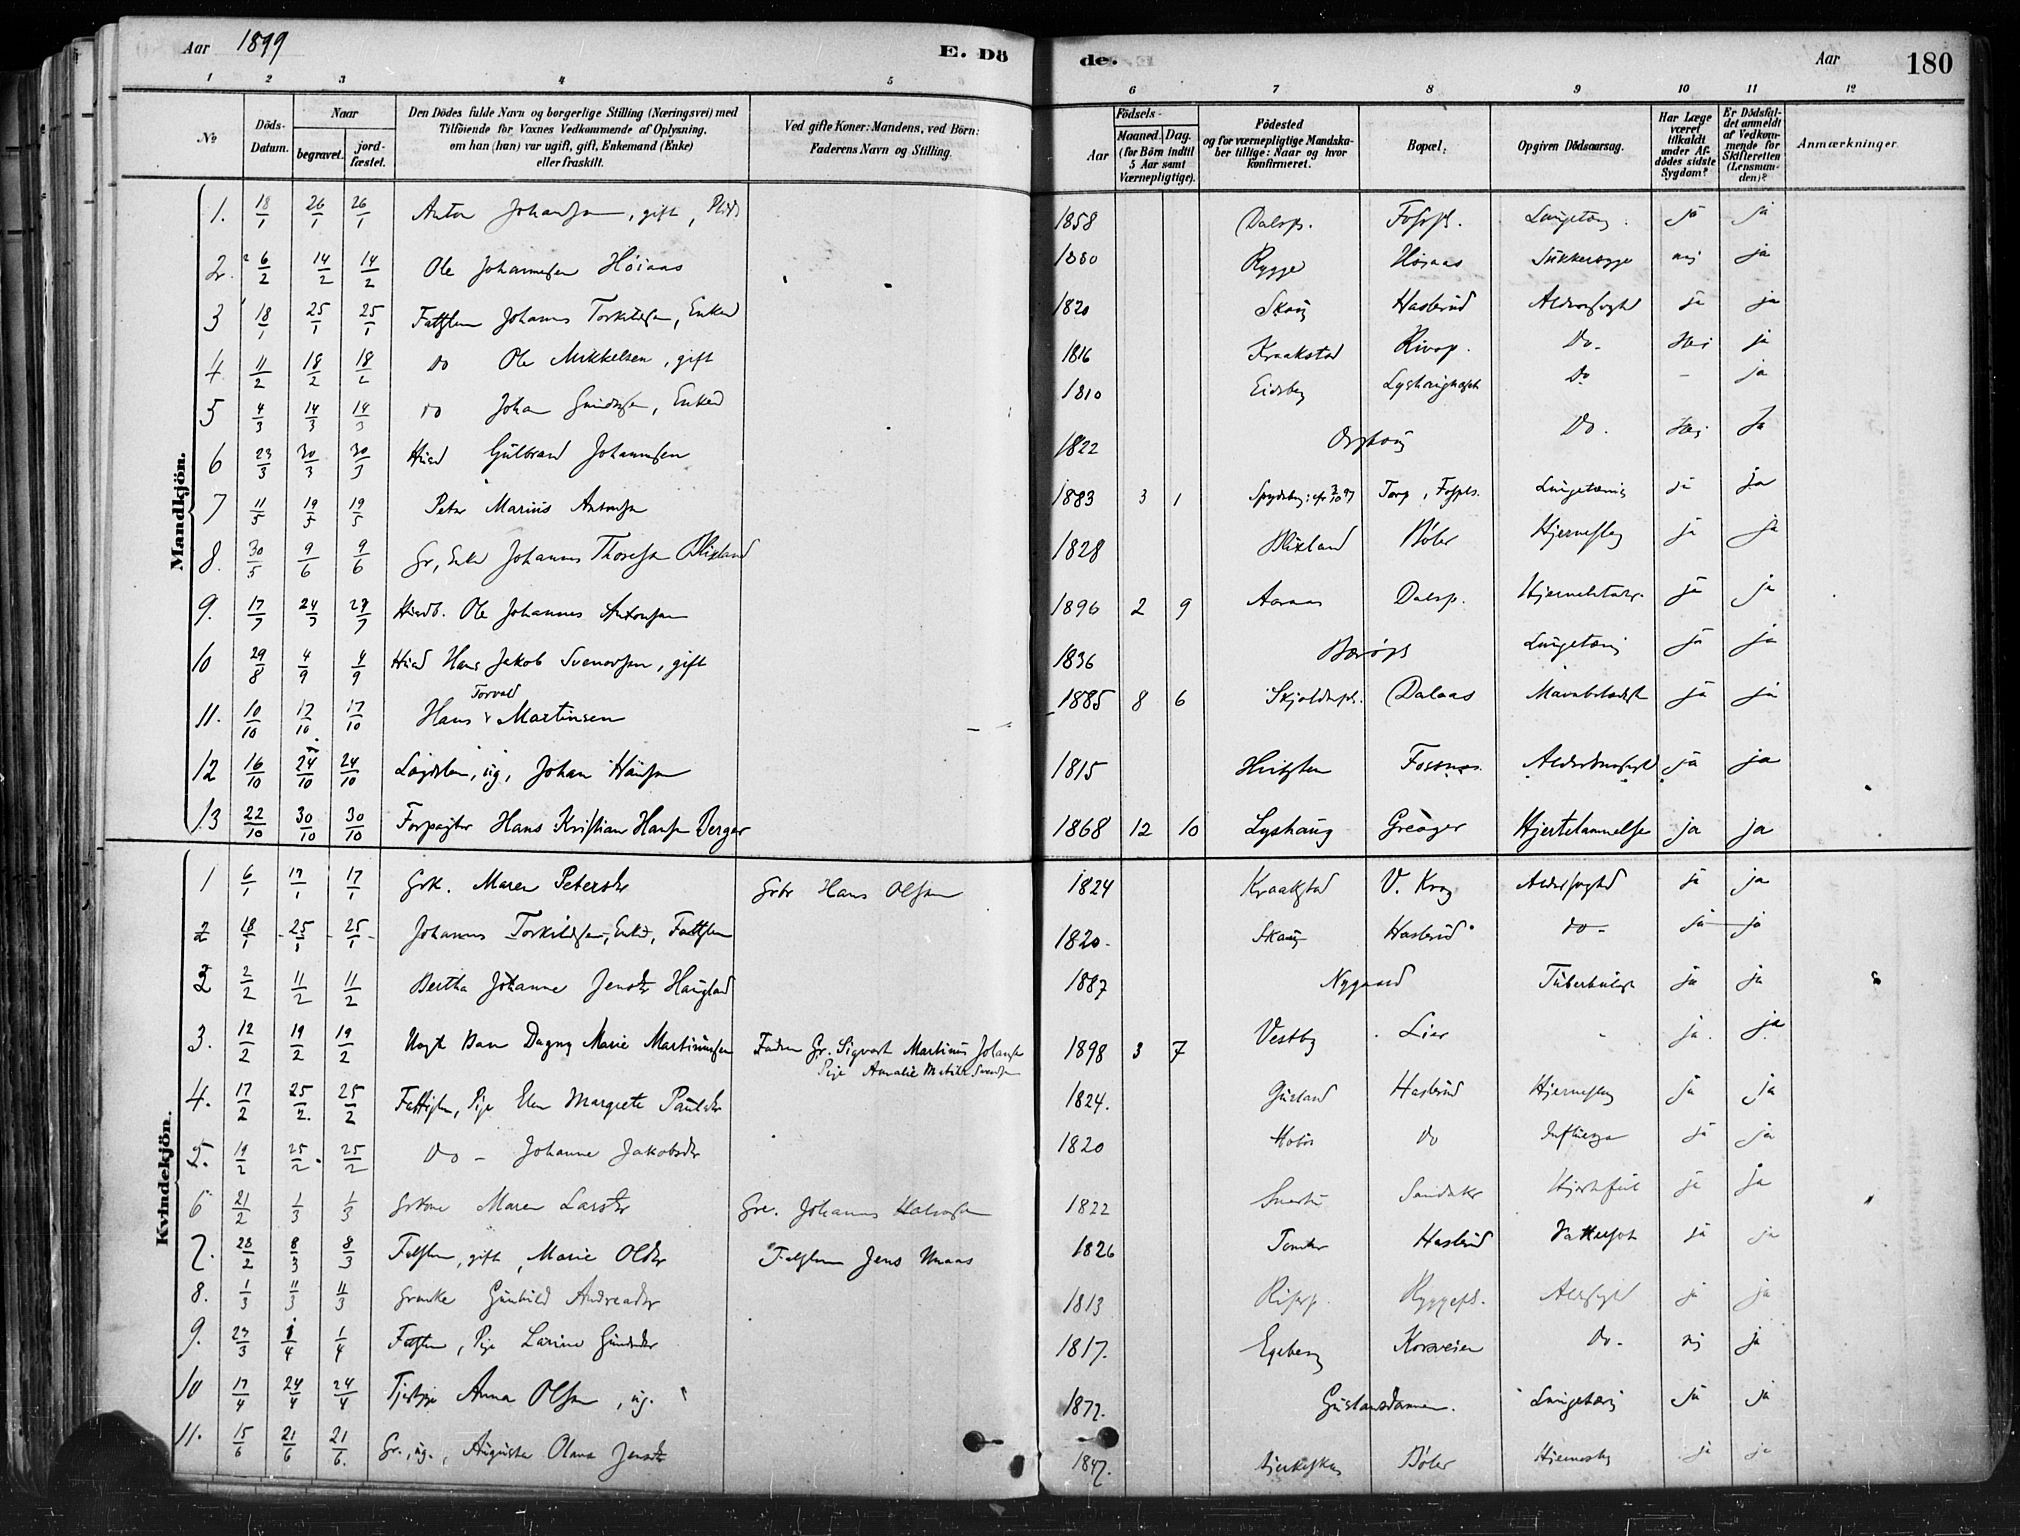 Aar 1899 E. Dö de. Aar 180
1 2 3 4 5 6 7 8 9 10 11 12
No. Döds-Datum. Naar begravet. jordfæstet. Den Dödes fulde Navn og borgerlige Stilling (Næringsvei) med Tilföiende for Voxnes Vedkommende af Oplysning, om han (hun) var ugift, gift, Enkemand (Enke) eller fraskilt. Ved gifte Koner: Mandens, ved Börn: Faderens Navn og Stilling. Födsels- Aar Maaned. Dag. (for Börn indtil 5 Aar samt Værnepligtige). Födested og for værnepligtige Mandskaber tillige: Naar og hvor konfirmeret. Bopæl. Opgiven Dödsaarsag. Har Læge været tilkaldt under Afdödes sidste Sygdom? Er Dödsfaldet anmeldt af Vedkommende for Skifteretten (Lensmanden)? Anmærkninger
Mandkjön.
1. 18/1 26/1 26/1 Anton Johansen, gift, 1858 Dalsp. Fospl. ja ja
2. 6/2 14/2 14/2 Ole Johannesen Höiaas Rygge Höiaas Sukkersyge nei ja
3 18/1 25/1 25/1 Fattiglem Johannes Torkildsen, Enkem 1820 Skaug Haslerud ja ja
4. 11/2 18/2 18/2 Do Ole Mikkelsen, gift 1816 Kraakstad Do. Nei ja
5 4/3 14/3 14/3 Do Johan Enkem 1810 Eidsberg Do - ja
6 23/3 30/3 30/3 Husm Gulbrand Johannesen 1822 Do. Nei Ja
7 11/5 19/5 19/5 Peter Marius Antonsen 1883 3 1 Torp, Fospl. Lungetæring ja ja
8. 30/5 9/6 9/6 Gr, Enkem Johannes Thoresen Blixland 1828 Blixland Böler Hjerneslag ja ja
9. 17/7 24/7 24/7 Husmb. Ole Johannes Antonsen 1896 2 9 Aaraas Dalsp. ja ja
10 29/8 4/9 4/9 Husm Hans Jakob Svenovsen, gift 1836 Lungetæring ja ja
11. 10/10 17/10 17/10 Hans Torvald Martinsen 1885 8 6 Dalaas ja ja
12 16/10 24/10 24/10 Lægdslem, ug, Johan Hansen 1815 Hvitsten Fossnes ja ja
13 22/10 30/10 30/10 Forpagter Hans Kristian Hansen Berger 1868 12 10 Lyshaug Greager Hjertelammelse ja ja
Kvindekjön.
1 6/1 17/1 17/1 Grk. Maren Petersdr Grbr Hans Olsen 1824 Kraakstad V. Krog ja ja
2 18/1 25/1 25/1 Johannes Torkildsen, Enkem, Fattiglem 1820. Skaug Haslerud do ja ja
2 2/2 11/2 11/2 Bertha Johanne Jensdr Haugland 1887 Nygaard Tuberkulose ja ja
3. 12/2 19/2 19/2 Uægte Barn Dagny Marie Martiniussen Fader Gr. Sigvart Martinus Johansen
Pige Amalie Matilde 1898 3 7 Vestby Lier ja. ja
4. 17/2 25/2 25/2 Fattiglem, Pige Elen Margrete Paulsdr 1824. Haslerud Hjerneslag ja ja
5. 19/2 25/2 25/2 Do - Johanne Jakobsdr 1820 Do Influenza ja ja
6 21/2 1/3 1/3 Grkone Maren Larsdr Gr. Johannes Halvorsen 1822 Sandaker Hjertefeil ja ja
7. 28/2 8/3 8/3 Fattiglem, gift, Marie Olsdr Fattiglem Jens 1826 Tomter Haslerud Vattersot ja ja
8. 1/3 11/3 11/3 Grenke Gunhild Andreasdr 1813 Ryggepl. ja ja
9. 23/3 1/4 1/4 Fattiglem, Pige Larine 1817. Egeberg Korsveien Do. nei ja
10 17/4 24/4 24/4 Anna Olsen, ug. 1872. Lungetæring ja ja
11. 15/6 21/6 21/6 Gr., ug., Augusta Olava Jensdr 1847. Böler Hjerneslag ja ja